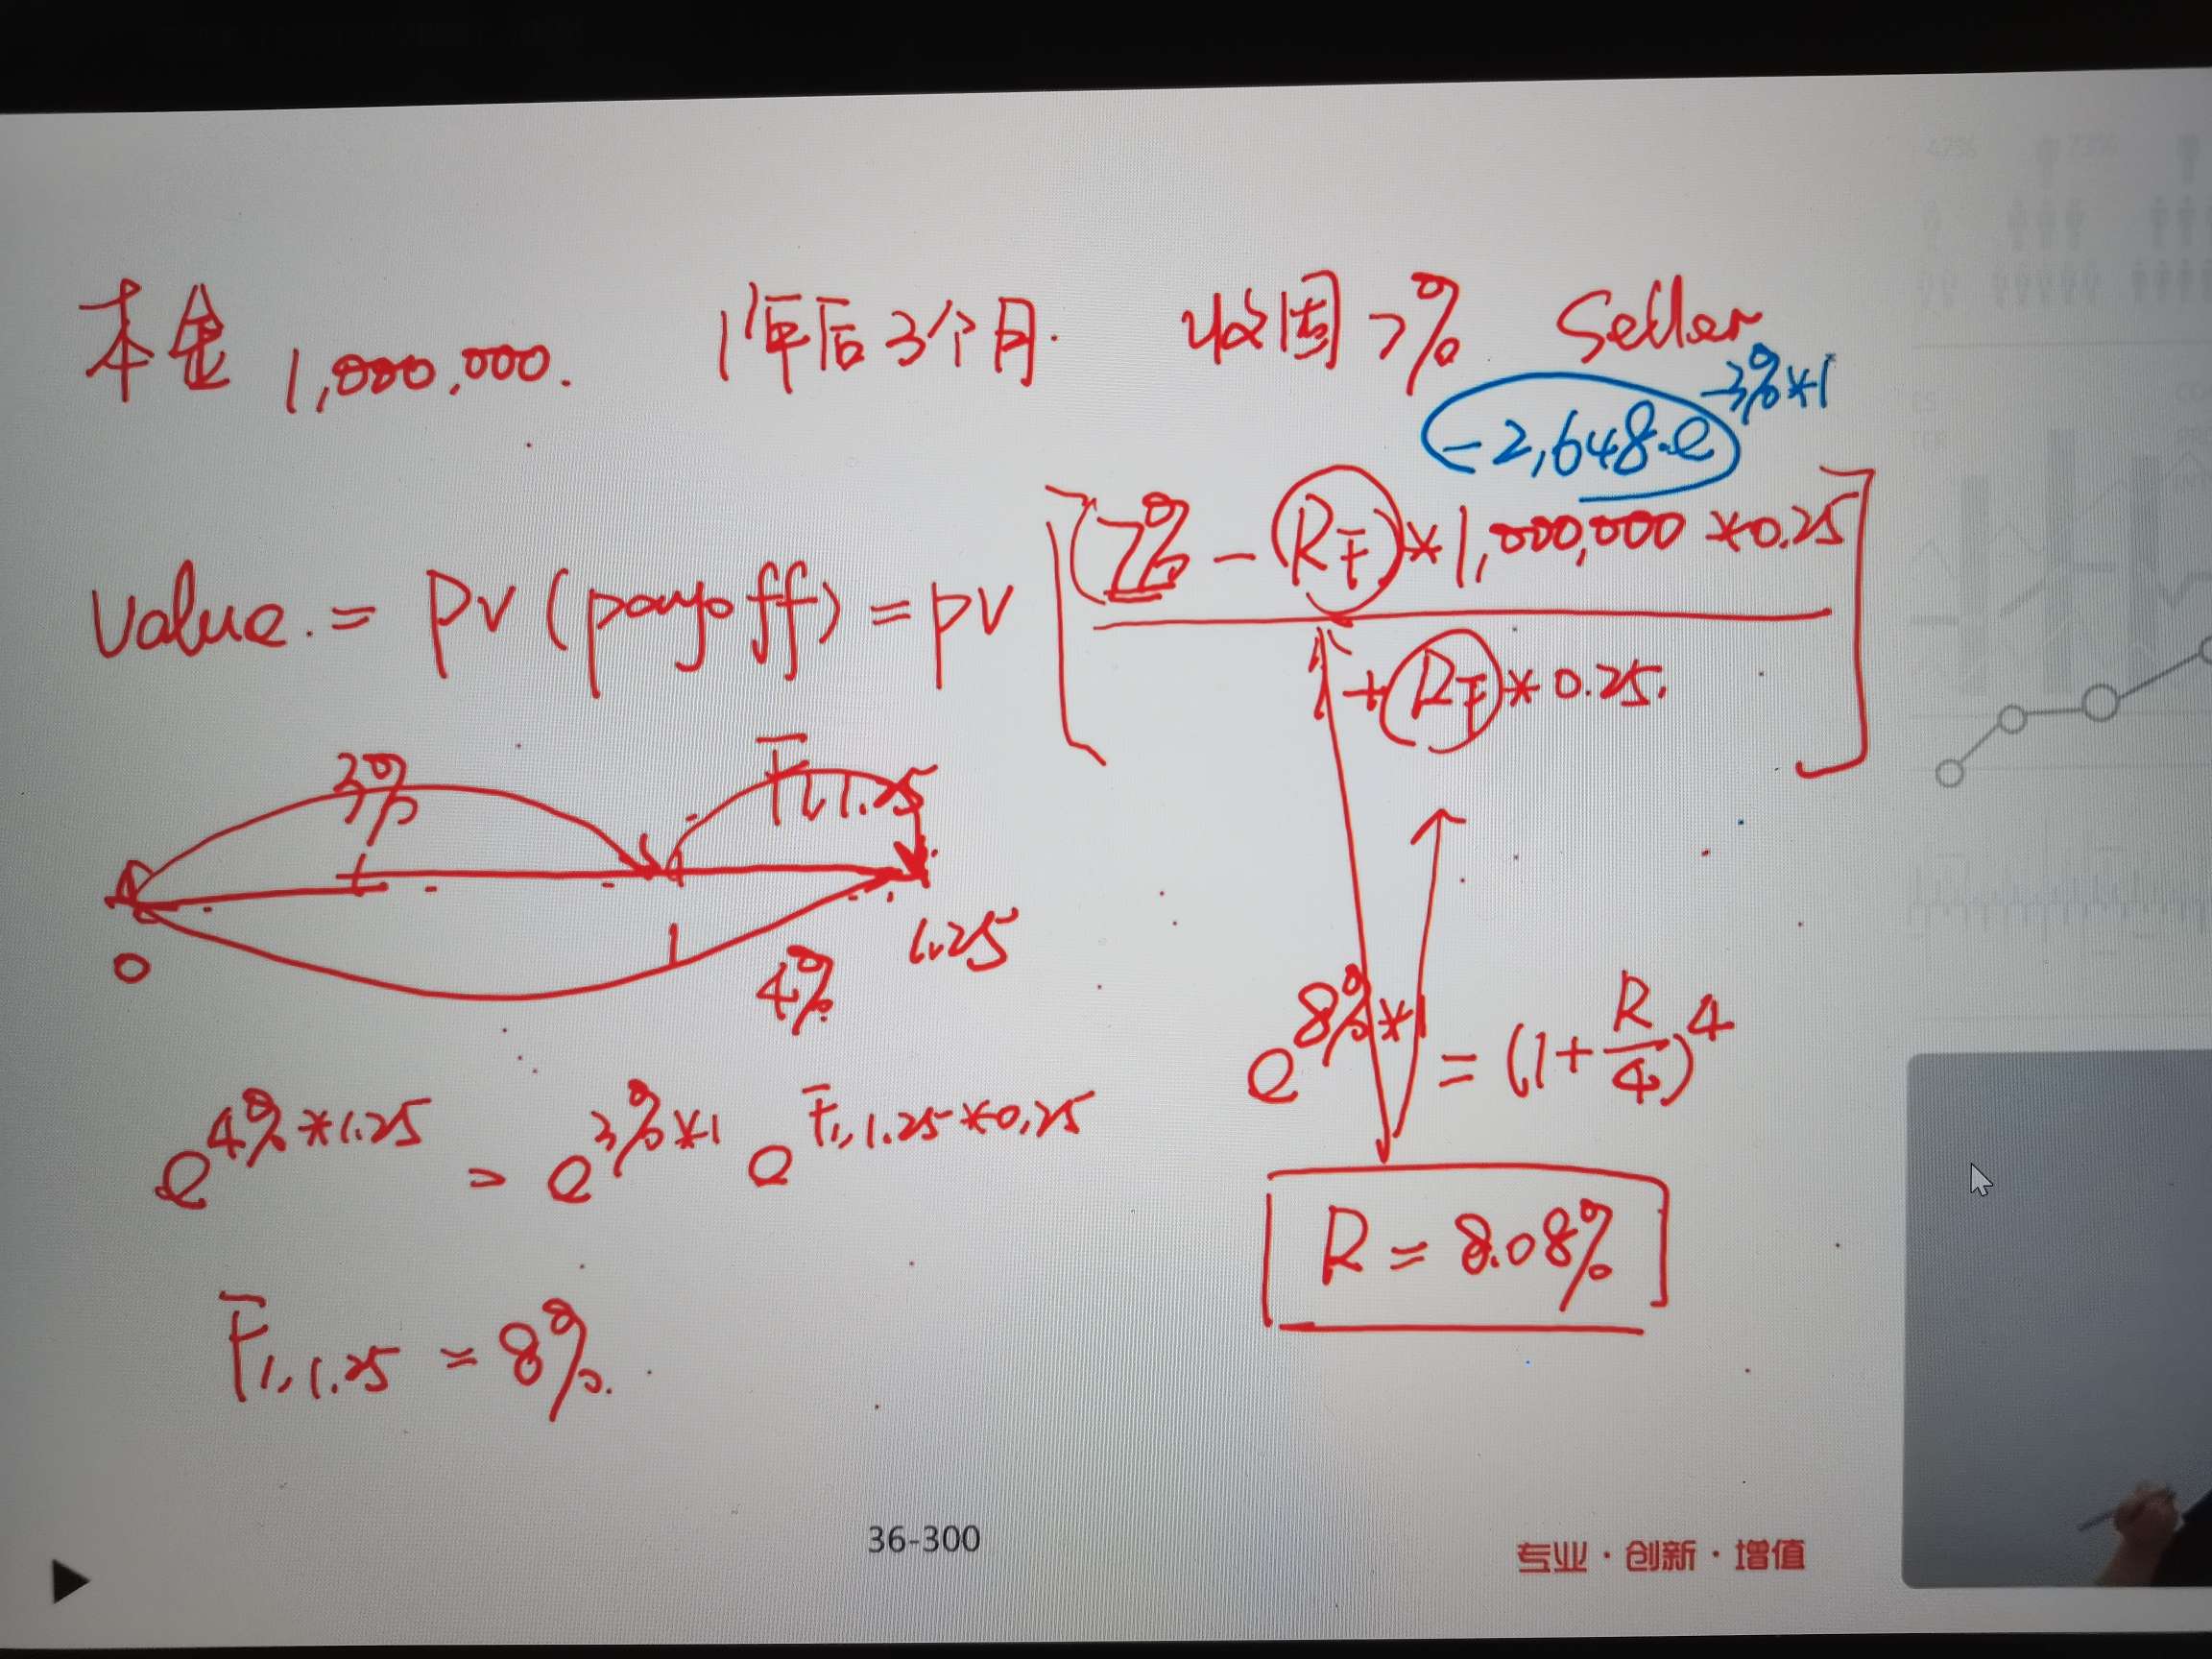 本金 1,000,000. 1年后3个月. 收固7% Seller
-2,648·e^-3%*1
Value. = PV (payoff) = PV [(7% - RF) * 1,000,000 * 0.25 / 1 + RF * 0.25.]
3% F1,1.25
0 1 4% 1.25
e^4%*1.25 = e^3%*1 e^F1,1.25*0.25
e^8%*1 = (1+R/4)^4
R = 8.08%
F1,1.25 = 8%.
36-300
专业·创新·增值